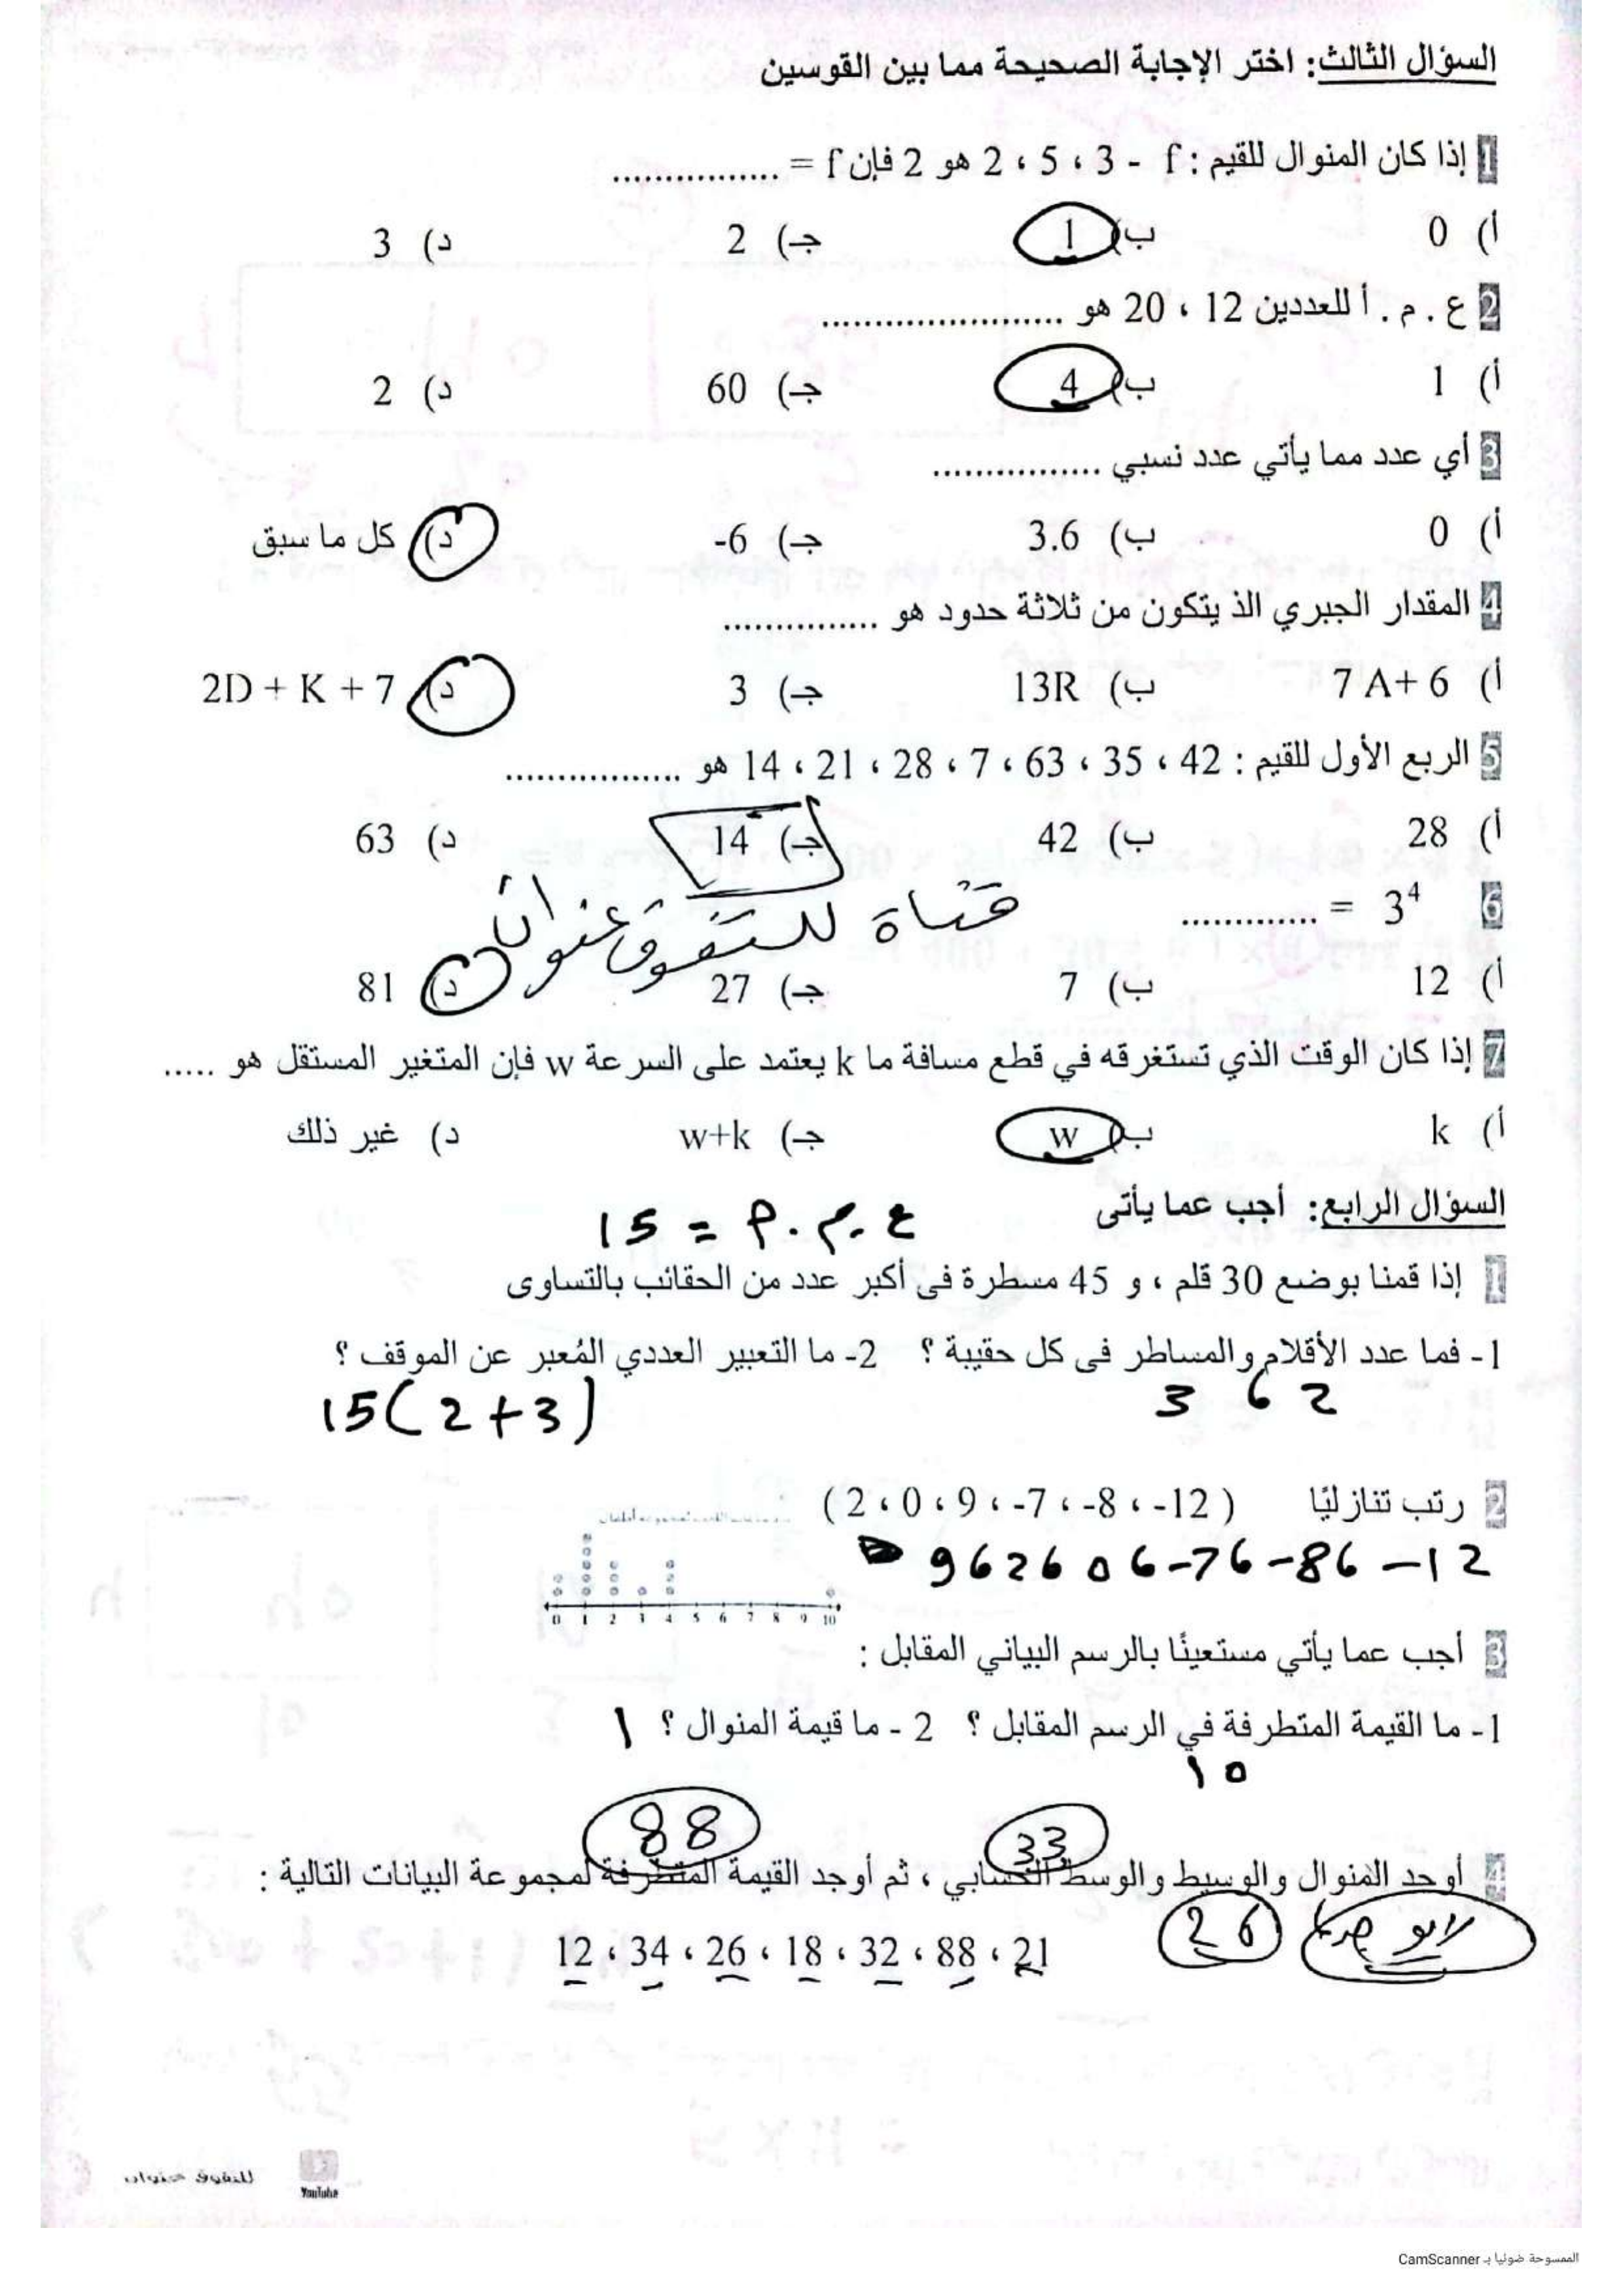 السؤال الثالث: اختر الإجابة الصحيحة مما بين القوسين
1 إذا كان المنوال للقيم : 2 ، 5 ، 3 - f هو 2 فإن f = ................
أ) 0 ب) 1 جـ) 2 د) 3
2 ع . م . أ للعددين 12 ، 20 هو .......................
أ) 1 ب) 4 جـ) 60 د) 2
3 أي عدد مما يأتي عدد نسبي ................
أ) 0 ب) 3.6 جـ) -6 د) كل ما سبق
4 المقدار الجبري الذ يتكون من ثلاثة حدود هو ...............
أ) 7 A+ 6 ب) 13R جـ) 3 د) 2D + K + 7
5 الربع الأول للقيم : 42 ، 35 ، 63 ، 7 ، 28 ، 21 ، 14 هو .................
أ) 28 ب) 42 جـ) 14 د) 63
6 3⁴ = .............
قناة للتفوق عنوان
أ) 12 ب) 7 جـ) 27 د) 81
7 إذا كان الوقت الذي تستغرقه في قطع مسافة ما k يعتمد على السرعة w فإن المتغير المستقل هو .....
أ) k ب) w جـ) w+k د) غير ذلك
السؤال الرابع: أجب عما يأتى
ع . م . أ = 15
1 إذا قمنا بوضع 30 قلم ، و 45 مسطرة فى أكبر عدد من الحقائب بالتساوى
1- فما عدد الأقلام والمساطر فى كل حقيبة ؟ 2- ما التعبير العددي المُعبر عن الموقف ؟
2 ، 3 15(2+3)
2 رتب تنازليًا ( 2 ، 0 ، 9 ، -7 ، -8 ، -12 )
9 ، 2 ، 0 ، -7 ، -8 ، -12
0 1 2 3 4 5 6 7 8 9 10
3 أجب عما يأتي مستعينًا بالرسم البياني المقابل :
1- ما القيمة المتطرفة في الرسم المقابل ؟ 2 - ما قيمة المنوال ؟ 1
10
33 88
4 أوجد المنوال والوسيط والوسط الحسابي ، ثم أوجد القيمة المتطرفة لمجموعة البيانات التالية :
لا يوجد 26
12 ، 34 ، 26 ، 18 ، 32 ، 88 ، 21
للتفوق عنوان
YouTube
الممسوحة ضوئيا بـ CamScanner